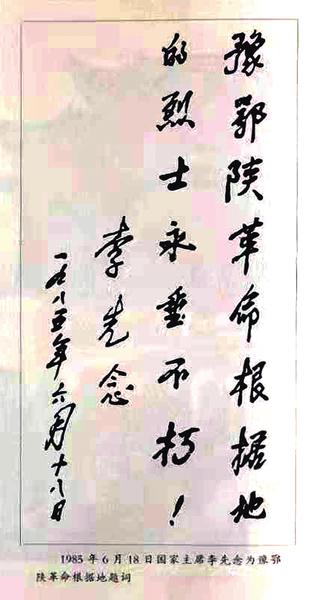 豫鄂陕革命根据地
的烈士永垂不朽！
李先念
一九八五年六月十八日
1985年6月18日国家主席李先念为豫鄂
陕革命根据地题词